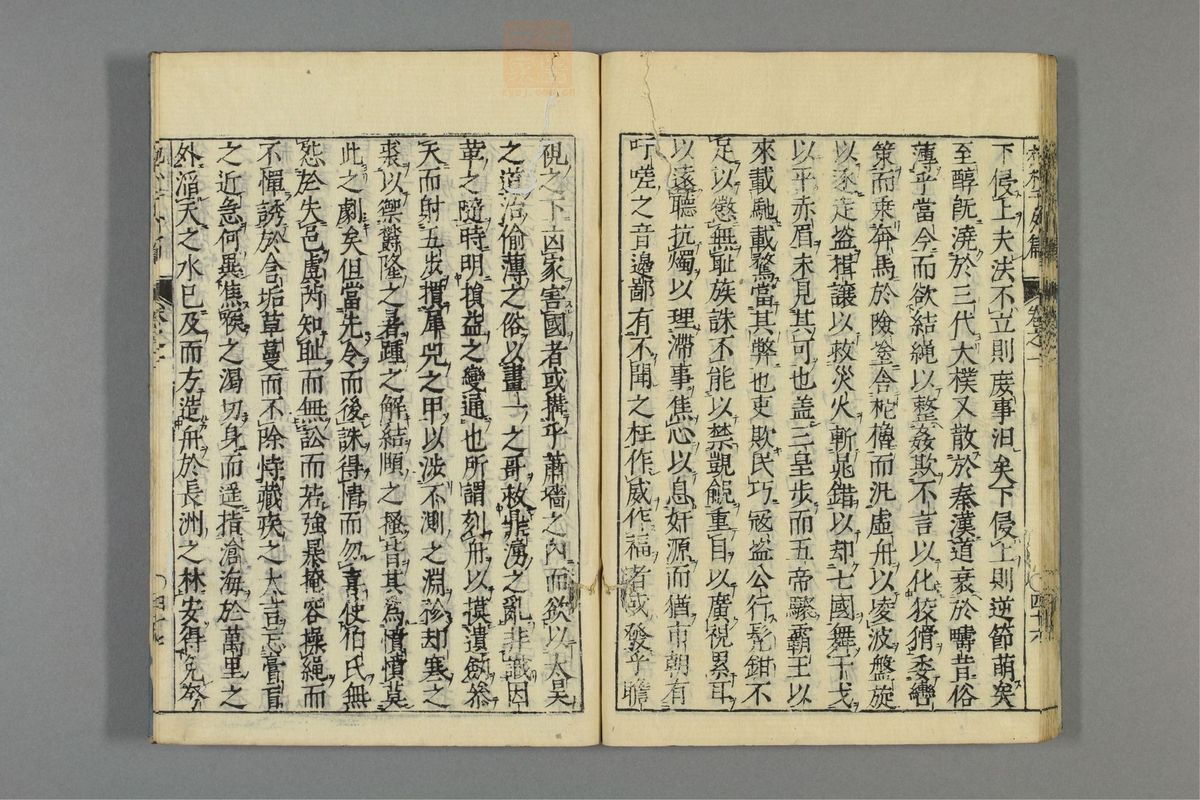 下侵上夫法不立則庶事汨矣下侵上則逆節萌矣
至醇既澆於三代大樸又散於秦漢道衰於疇昔俗
薄乎當今而欲結繩以整姦欺不言以化狡猾委轡
策而乗奔馬於險塗舍柂櫓而汎虛舟以凌波盤旋
以逐走盗揖讓以救災火斬晁錯以却七國舞干戈
以平赤眉未見其可也盖三皇步而五帝驟霸王以
來載馳載騖當其弊也吏欺民巧寇盗公行髡鉗不
足以懲無耻族誅不能以禁覬覦重目以廣視累耳
以遠聽抗燭以理滯事焦心以息奸源而猶市朝有
吁嗟之音邉鄙有不聞之枉作威作福者或發乎瞻
視之下凶家害國者或搆乎蕭墻之內而欲以太昊
之道治偷薄之俗以畫一之哥救鼎湧之亂非識因
革之隨時明損益之變通也所謂刻舟以摸遺劔叅
天而射五步擐犀兕之甲以涉不測之淵袗却寒之
裘以禦鬱隆之暑踵之解結頥之搔背其爲憒憒莫
此之劇矣但當先令而後誅得情而勿喜使伯氏無
怨於失邑虞芮知耻而無訟而若強暴掩容操繩而
不憚誘於含垢草蔓而不除恃藏疾之大言忘膏肓
之近急何異焦喉之渴切身而遥指滄海於萬里之
外滔天之水已及而方造舟於長洲之林安得免𠫵
卷之一
四十六
四十七